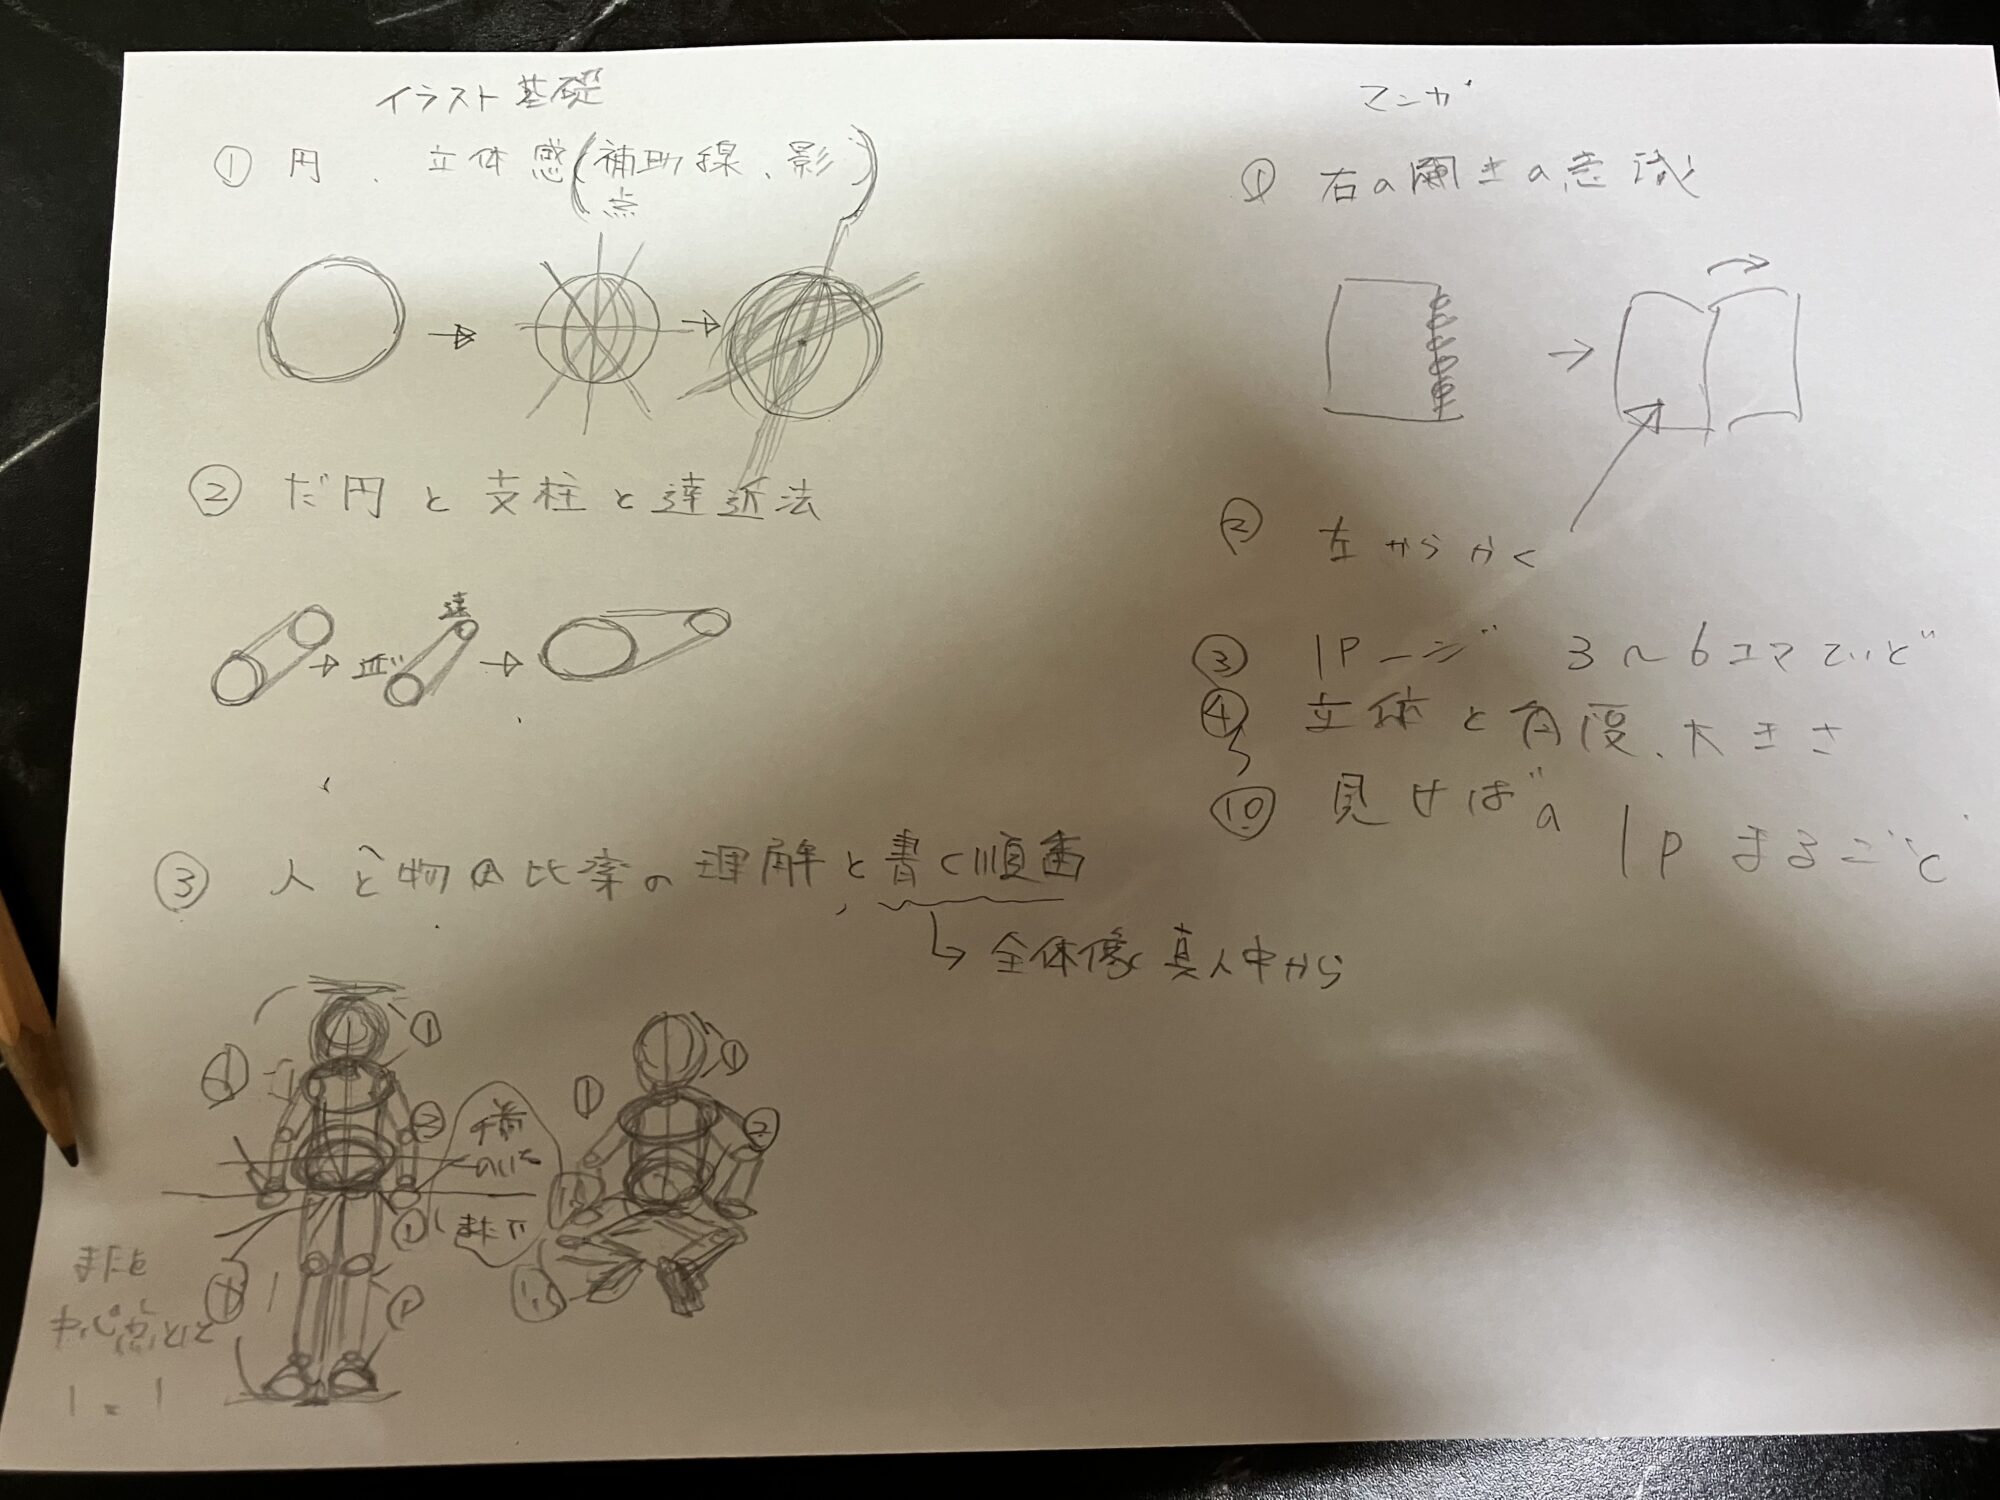 イラスト基礎
① 円、立体感(補助線、影
点)
② だ円と支柱と遠近法
遠
近
③ 人と物の比率の理解と書く順番
↳ 全体像 真人中から
①
②
①
また下
①
①
②
1.5
またを
中心点として
1=1
マンガ
① 右の開きの意識
② 左からかく
③ 1Pージ 3〜6コマていど
④ 立体と角度、大きさ
〜
⑩ 見せばの 1Pまるごと